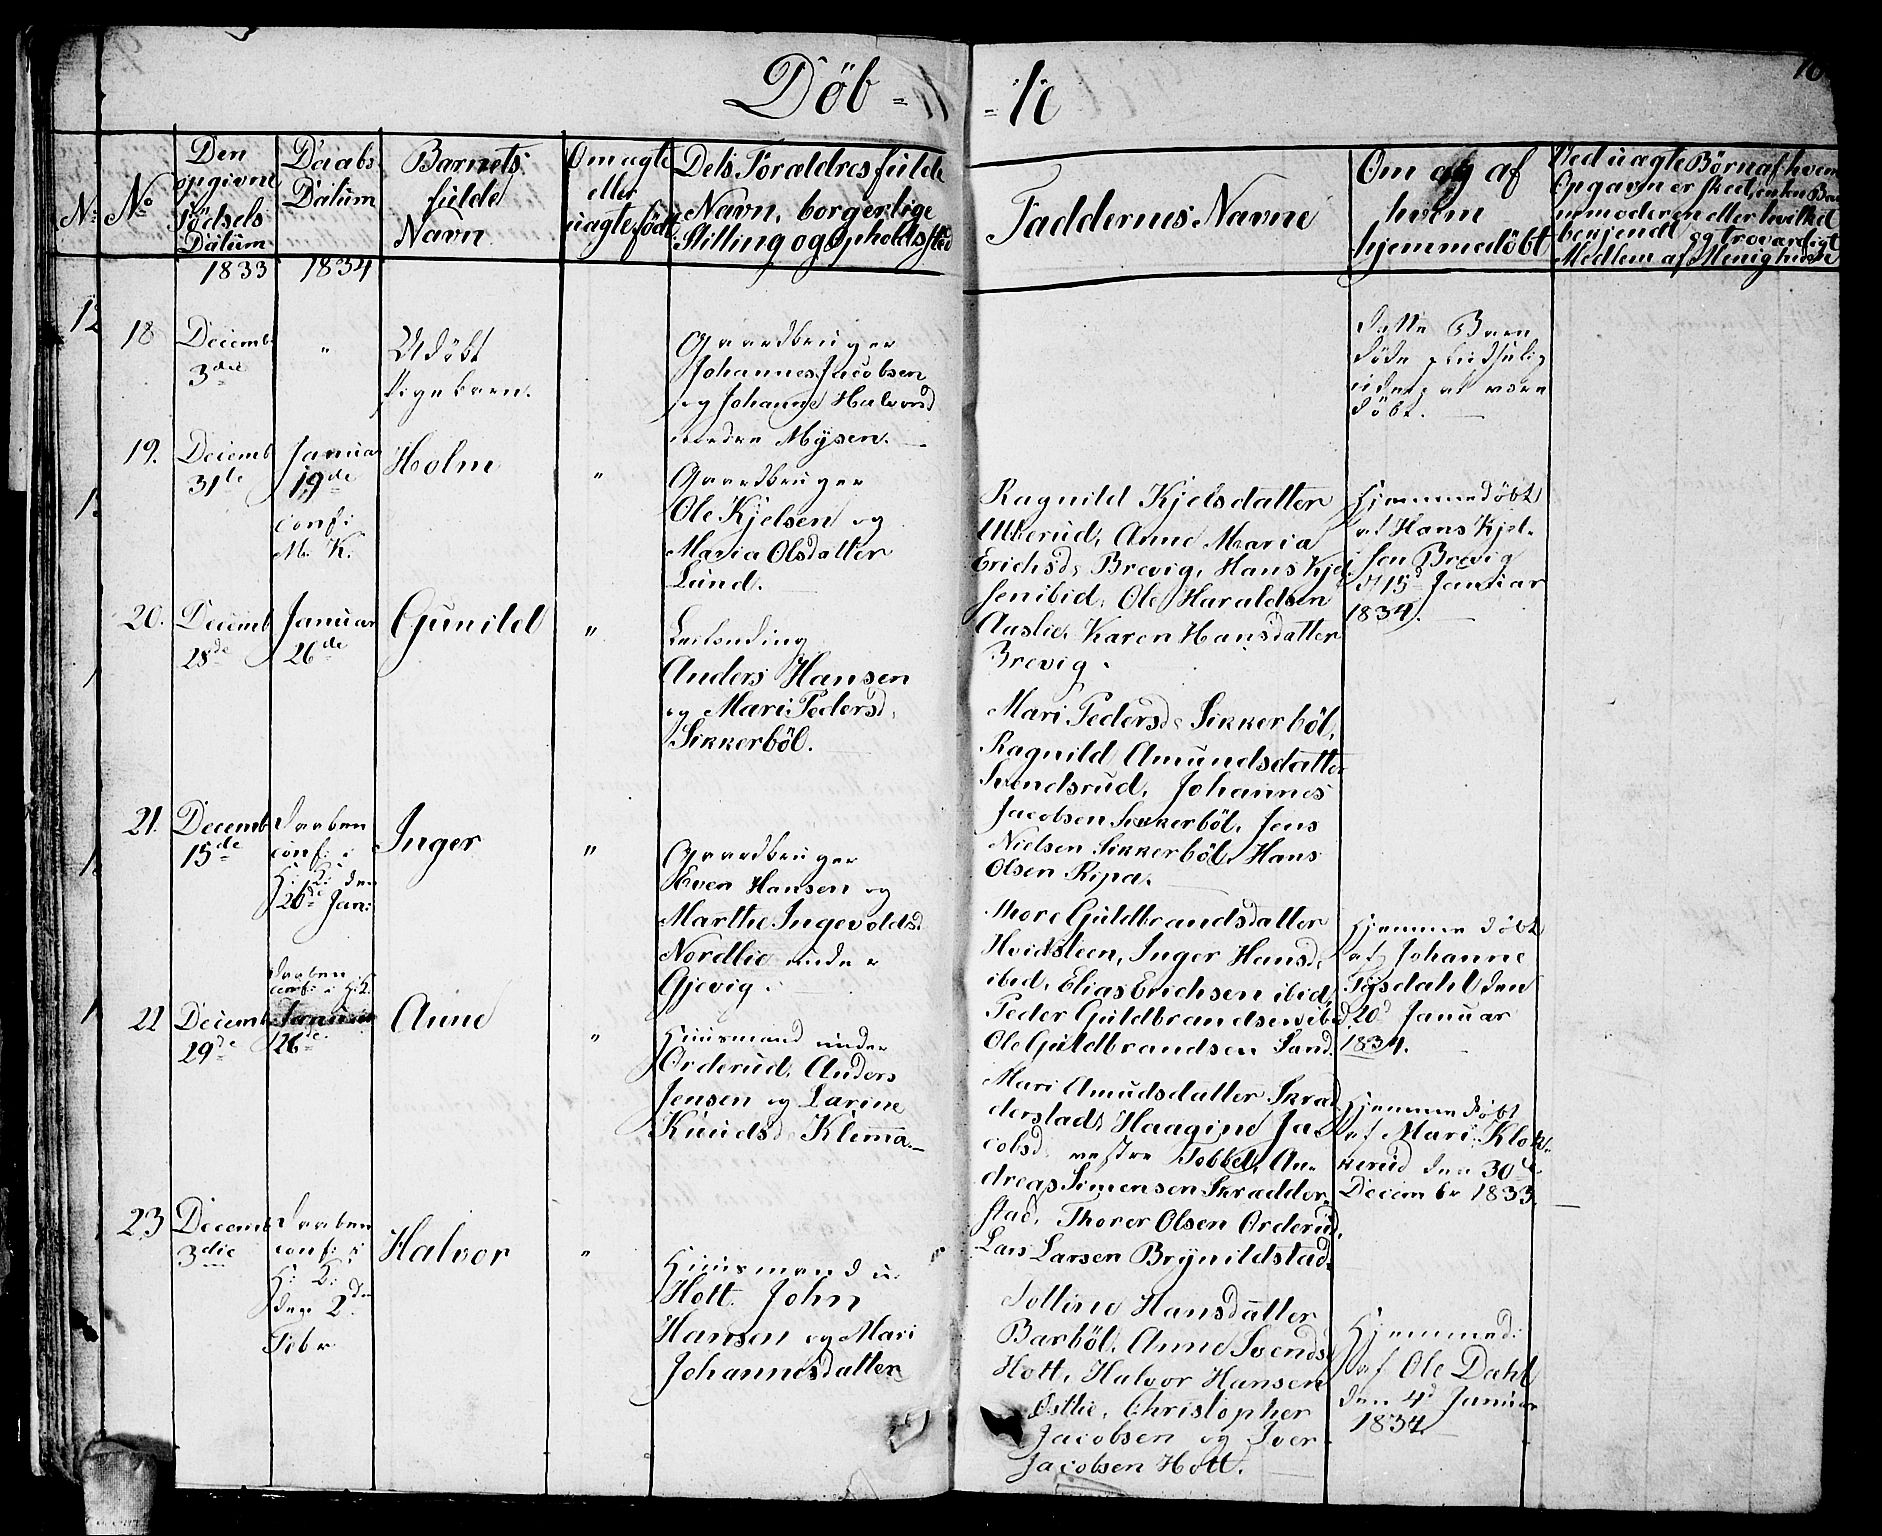 Döb = = te
Den
opgivne
Födsels
Datum
Daabs
Datum
Barnets
fulde
Navn
Om ægte
eller
uægte född
Dets Forældres fulde
Navn, borgerlige
Stilling og Opholdssted
Faddernes Navne
Om og af
hvem
hjemmedöbt
Ved uægte Börn af hvem
Opgaven er skeed, enten Bar-
nemoderen eller hvilket
bekjendt og troværdigt
Medlem af Menigheden
No
1833
1834
18
Decemb
3die
"
Udöbt
Pigebarn.
Gaardbruger
Johannes Jacobsen
og Johanne Halvorsd
nedre Mysen.
Dette Barn
döde pludselig
uden at være
döbt.
19.
Decemb
31te
Januar
19de
conf:
M. K.
Holm
"
Gaardbruger
Ole Kjelsen og
Maria Olsdatter
Lund.
Ragnild Kjelsdatter
Ulkerud, Anne Maria
Erichsd: Brevig, Hans Kjel
sen ibid, Ole Haraldsen
Aaslie, Karen Hansdatter
Brevig.
Hjemmedöbt
af Hans Kjel-
sen Brevig
d 15d Januar
1834.
20.
Decemb
28de
Januar
26de
Gunild
"
Leilending
Anders Hansen
og Mari Pedersd.
Sikkerböl.
Mari Pedersd: Sikkerböl,
Ragnild Amundsdatter
Svendsrud, Johannes
Jacobsen Sikkerböl, Jens
Nielsen Sikkerböl, Hans
Olsen Ripa.
21.
Decemb
15de
Daaben
conf: i
H: K: den
26de Jan:
Inger
"
Gaardbruger
Even Hansen og
Marthe Ingevoldsd
Nordlie under
Gjevig.
Thore Guldbrandsdatter
Hvidsteen, Inger Hansd.
ibid, Elias Erichsen ibid,
Peder Guldbrandsen ibid
Ole Guldbrandsen Sand.
Hjemmedöbt
af Johanne
Tösdahl den
20d Januar
1834.
22
Decemb
29de
Daaben
conf: i H: K:
Januar
26de
Anne
"
Huusmand under
Orderud, Anders
Jensen og Larine
Knudsd: Klemma.
Mari Amudsdatter Skræd
derstad, Haagine Ja-
cobsd. vestre Tobbel, An-
dreas Simensen Skrædder-
stad, Thorer Olsen Orderud,
Lars Larsen Brynildstad.
Hjemmedöbt
af Mari Klok-
kerud den 30te
Decembr 1833.
23
Decemb
3die
Daaben
conf: i
H: K:
den 2den
Febr
Halvor
"
Huusmand u:
Hott. John
Hansen og Mari
Johannesdatter
Jolline Hansdatter
Barböl, Anne Svendsd
Hott, Halvor Hansen
Østlie, Christopher
Jacobsen og Iver
Jacobsen Hott.
Hjemmed:
af Ole Dahl
den 4d Januar
1834